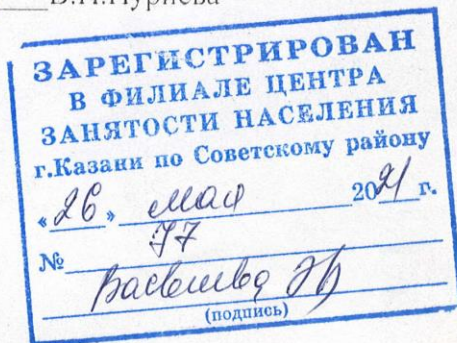 В.Н.Нуриева
ЗАРЕГИСТРИРОВАН
В ФИЛИАЛЕ ЦЕНТРА
ЗАНЯТОСТИ НАСЕЛЕНИЯ
г.Казани по Советскому району
«26» мая 2021 г.
№ 77
(подпись)